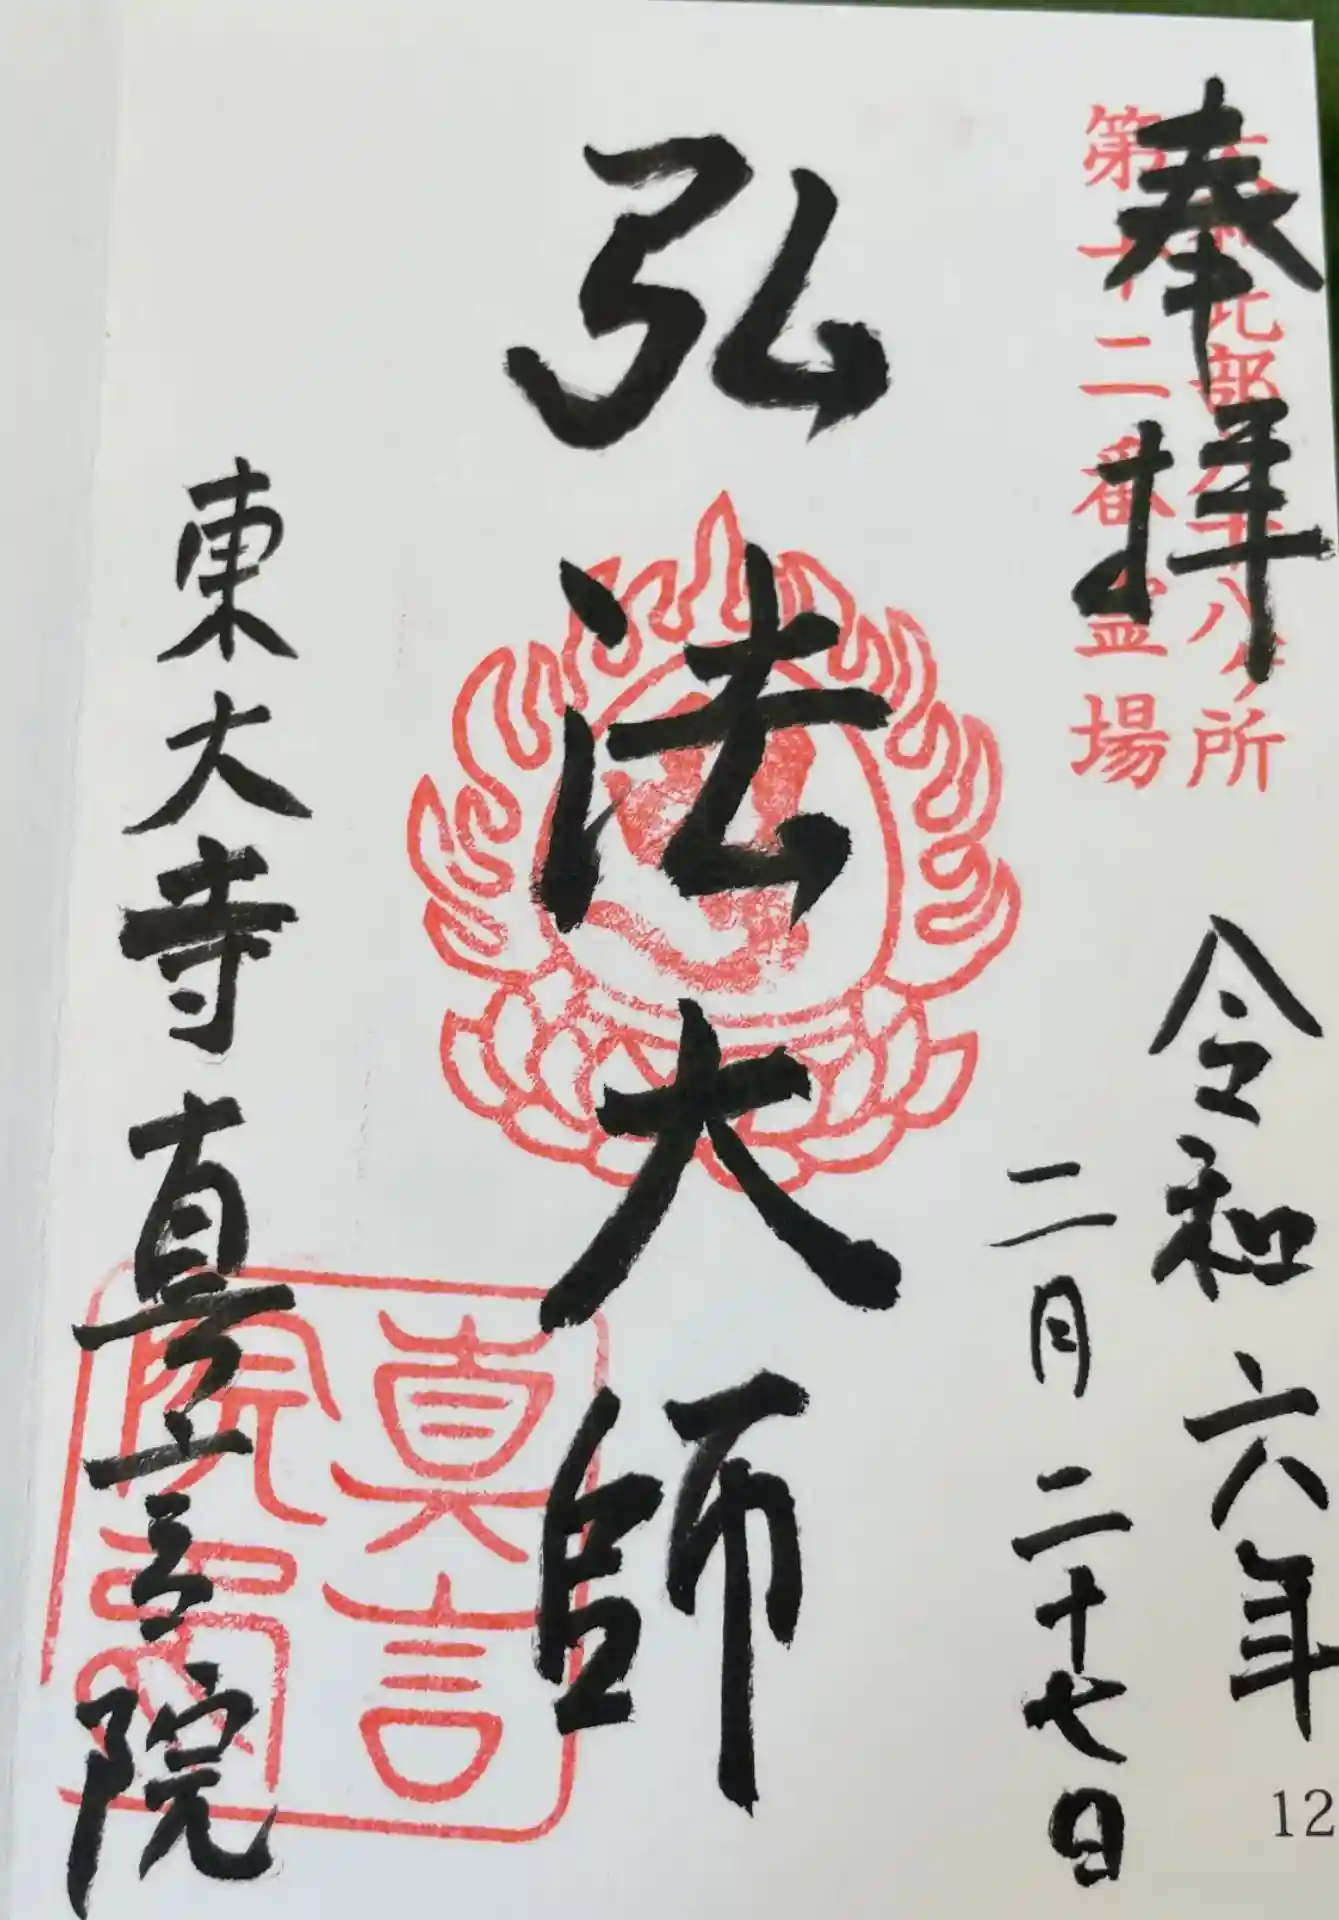 奉拝
大和北部八十八ヶ所
第十二番霊場
令和六年
二月二十七日
弘法大師
東大寺真言院
真言
院
12